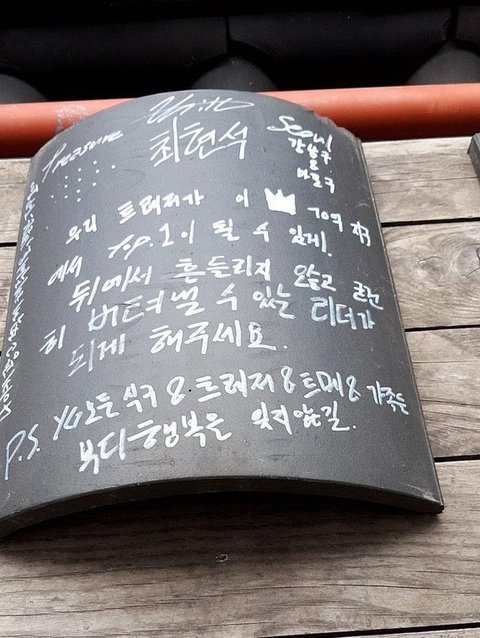 Treasure
최현석
Seoul
강남구
&
마포구
우리 트레저가 이 70억
에서 top.1이 될 수 있게.
뒤에서 흔들리지 않고 굳건
히 버텨낼 수 있는 리더가
되게 해주세요.
P.S. YG모든 식구 & 트레저 & 트메 & 가족들
부디 행복은 잊지 않길.